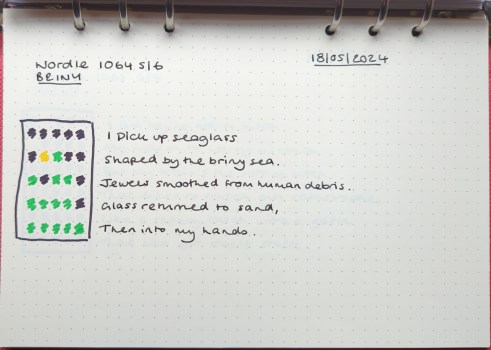 Wordle 1064 5/6
18/05/2024
BRINY
I pick up seaglass
Shaped by the briny sea.
Jewels smoothed from human debris.
Glass returned to sand,
Then into my hands.